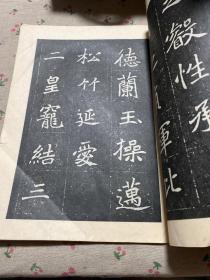 德蘭玉操邁
松竹延愛
二皇寵結三
叡性承
軍北